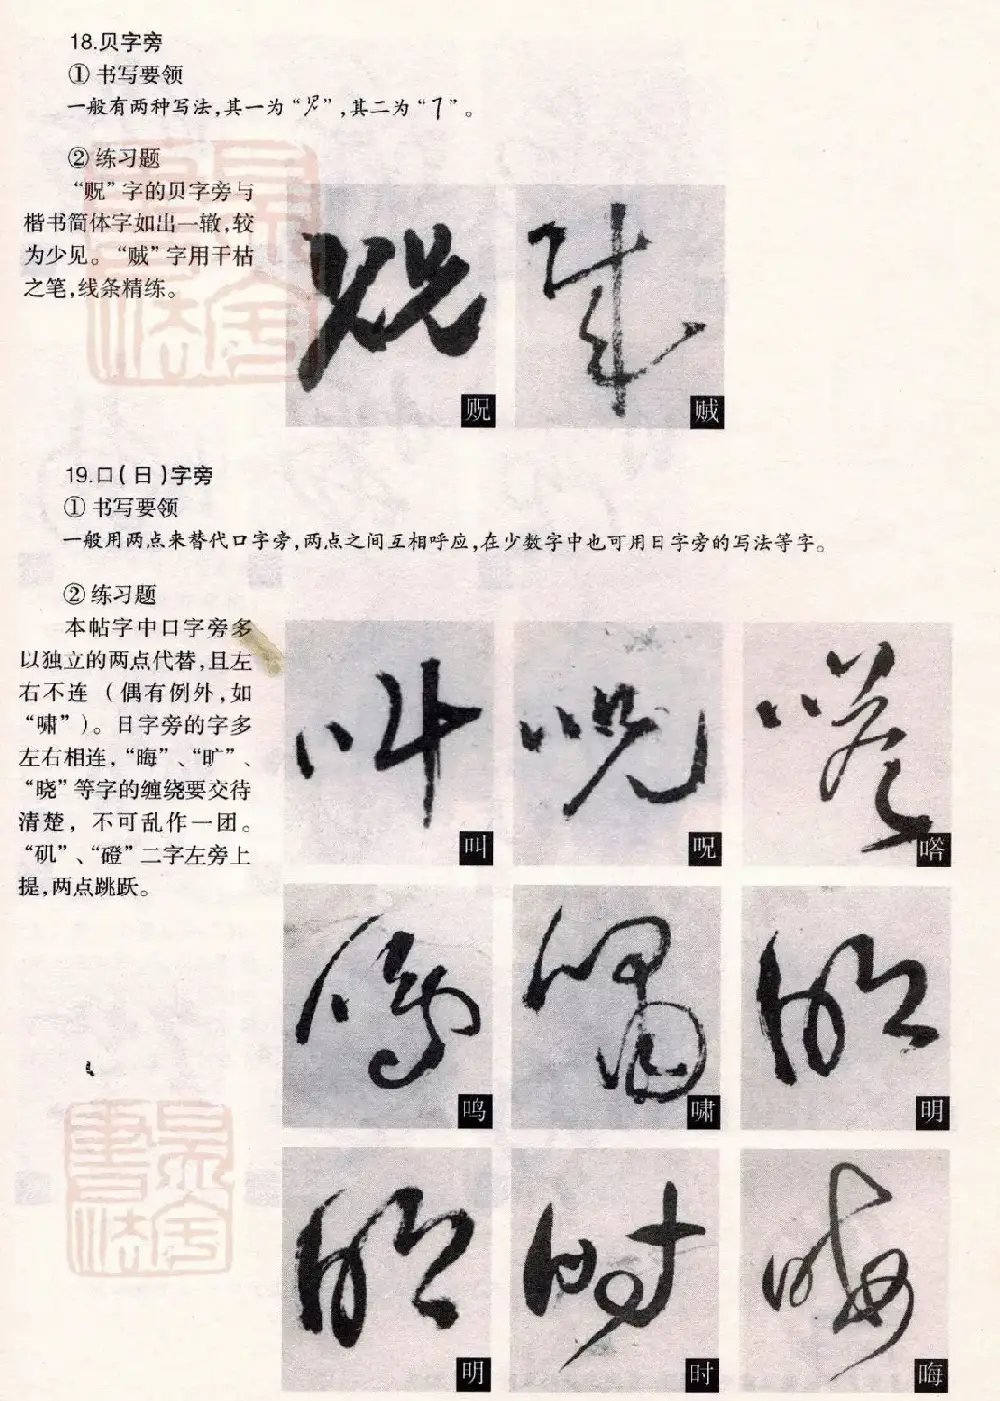 18.贝字旁
① 书写要领
一般有两种写法,其一为“”,其二为“”。
② 练习题
“贶”字的贝字旁与
楷书简体字如出一辙,较
为少见。“贼”字用干枯
之笔,线条精练。
贶
贼
19.口(日)字旁
① 书写要领
一般用两点来替代口字旁,两点之间互相呼应,在少数字中也可用日字旁的写法等字。
② 练习题
本帖字中口字旁多
以独立的两点代替,且左
右不连（偶有例外,如
“啸”)。日字旁的字多
左右相连,“晦”、“旷”、
“晓”等字的缠绕要交待
清楚，不可乱作一团。
“矶”、“磴”二字左旁上
提,两点跳跃。
叫
呪
嗒
鸣
啸
明
明
时
晦